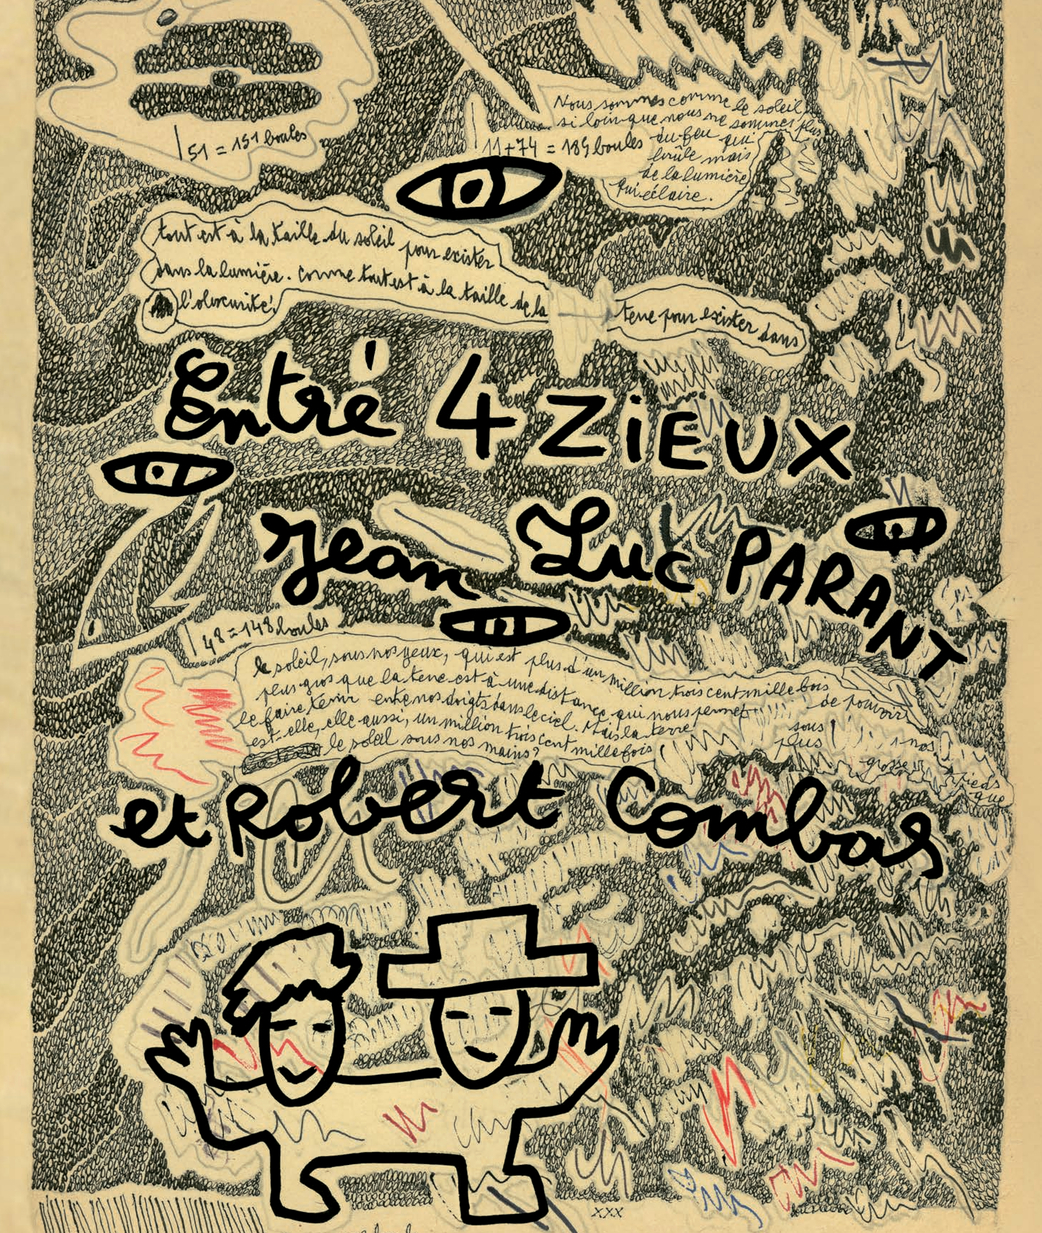 51 = 151 boules
Nous sommes comme le soleil
si loin que nous ne sommes plus
11+74 = 189 boules du feu qui
brûle mais
de la lumière
qui éclaire.
tout est à la taille du soleil pour exister
dans la lumière. comme tout est à la taille de la
terre pour exister dans
l'obscurité!
Entré 4 ZiEUX
Jean Luc PARANT
48 = 148 boules
le soleil, sous nos yeux, qui est plus d'un million trois cent mille fois
plus gros que la terre est à une distance qui nous permet de pouvoir
le faire tenir entre nos doigts dans le ciel. Mais la terre
est-elle, elle aussi, un million trois cent mille fois plus
sous nos
pieds
que
le soleil sous nos mains?
et Robert Combas
xxx